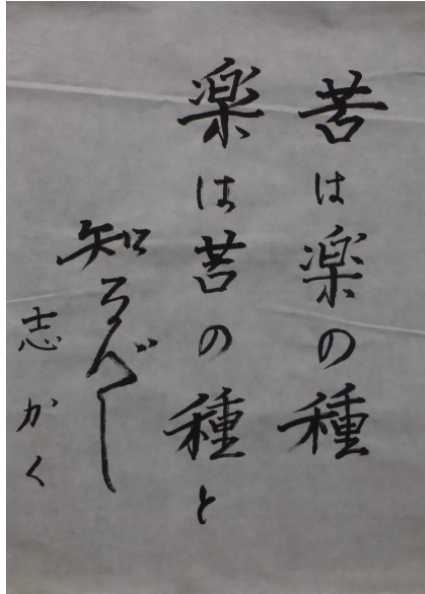 苦は楽の種
楽は苦の種と
知るべし
志かく